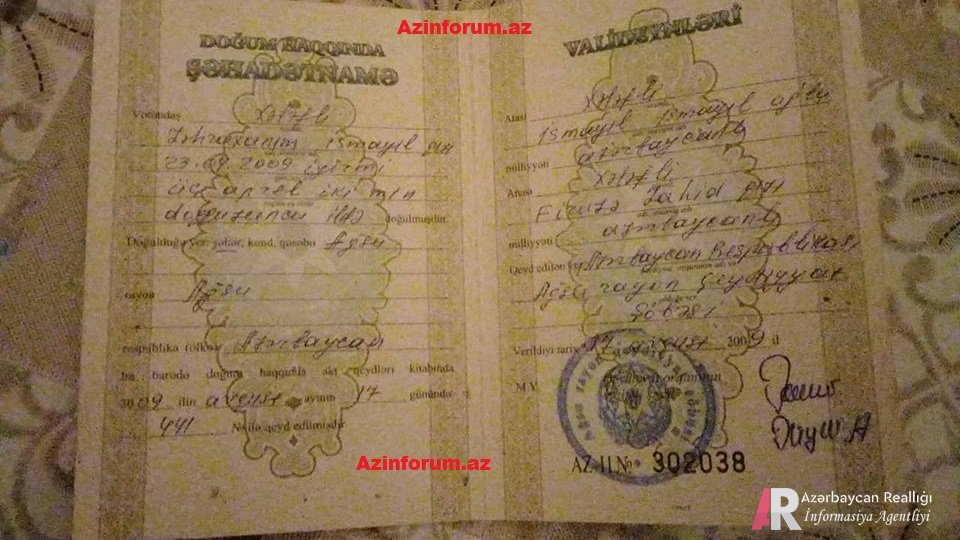 Azinforum.az
DOĞUM HAQQINDA
ŞƏHADƏTNAMƏ
Vətəndaş Xələfli
Zəhraxanım İsmayıl qızı
2009 iyirmi
üç aprel iki min
doqquzuncu ildə doğulmuşdur.
Doğulduğu yer: şəhər, kənd, qəsəbə Ağsu
rayon Ağsu
respublika (ölkə) Azərbaycan
bu barədə doğum haqqında akt qeydləri kitabında
2009 ilin avqust ayının 17 günündə
441 № ilə qeyd edilmişdir.
VALİDEYNLƏRİ
Atası Xələfli
İsmayıl İsmayıl oğlu
milliyyəti azərbaycanlı
Anası Xələfli
Firuzə Zahid qızı
milliyyəti azərbaycanlı
Qeyd edilən yer Azərbaycan Respublikası
Ağsu rayon Qeydiyyat
Şöbəsi
Verildiyi tarix 17 avqust 2009 il
M.Y.
AZ-II № 302038
Azinforum.az
AR Azərbaycan Reallığı
İnformasiya Agentliyi